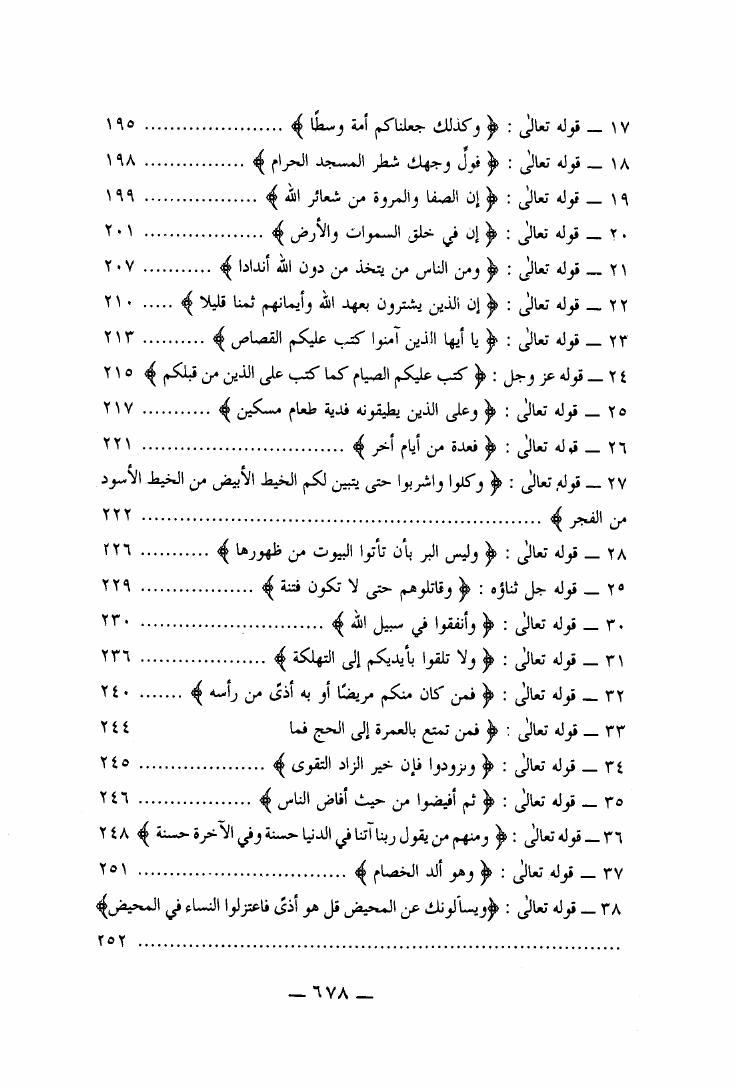 ١٧ — قوله تعالىٰ : ﴿ وكذلك جعلناكم أمة وسطًا ﴾ ...................... ١٩٥
١٨ — قوله تعالىٰ : ﴿ فولِّ وجهك شطر المسجد الحرام ﴾ ................ ١٩٨
١٩ — قوله تعالىٰ : ﴿ إن الصفا والمروة من شعائر الله ﴾ .................. ١٩٩
٢٠ — قوله تعالىٰ : ﴿ إن في خلق السموات والأرض ﴾ ................... ٢٠١
٢١ — قوله تعالىٰ : ﴿ ومن الناس من يتخذ من دون الله أندادا ﴾ ........... ٢٠٧
٢٢ — قوله تعالىٰ : ﴿ إن الذين يشترون بعهد الله وأيمانهم ثمنا قليلا ﴾ ..... ٢١٠
٢٣ — قوله تعالىٰ : ﴿ يا أيها الذين آمنوا كتب عليكم القصاص ﴾ .......... ٢١٣
٢٤ — قوله عز وجل : ﴿ كتب عليكم الصيام كما كتب على الذين من قبلكم ﴾ ٢١٥
٢٥ — قوله تعالىٰ : ﴿ وعلى الذين يطيقونه فدية طعام مسكين ﴾ ........... ٢١٧
٢٦ — قوله تعالىٰ : ﴿ فعدة من أيام أخر ﴾ ................................ ٢٢١
٢٧ — قوله تعالىٰ : ﴿ وكلوا واشربوا حتى يتبين لكم الخيط الأبيض من الخيط الأسود
من الفجر ﴾ ................................................................ ٢٢٢
٢٨ — قوله تعالىٰ : ﴿ وليس البر بأن تأتوا البيوت من ظهورها ﴾ ........... ٢٢٦
٢٥ — قوله جل ثناؤه : ﴿ وقاتلوهم حتى لا تكون فتنة ﴾ .................. ٢٢٩
٣٠ — قوله تعالىٰ : ﴿ وأنفقوا في سبيل الله ﴾ ............................. ٢٣٠
٣١ — قوله تعالىٰ : ﴿ ولا تلقوا بأيديكم إلى التهلكة ﴾ .................... ٢٣٦
٣٢ — قوله تعالىٰ : ﴿ فمن كان منكم مريضًا أو به أذىً من رأسه ﴾ ....... ٢٤٠
٣٣ — قوله تعالىٰ : ﴿ فمن تمتع بالعمرة إلى الحج فما ٢٤٤
٣٤ — قوله تعالىٰ : ﴿ وتزودوا فإن خير الزاد التقوى ﴾ .................... ٢٤٥
٣٥ — قوله تعالىٰ : ﴿ ثم أفيضوا من حيث أفاض الناس ﴾ .................. ٢٤٦
٣٦ — قوله تعالىٰ : ﴿ ومنهم من يقول ربنا آتنا في الدنيا حسنة وفي الآخرة حسنة ﴾ ٢٤٨
٣٧ — قوله تعالىٰ : ﴿ وهو ألد الخصام ﴾ ................................. ٢٥١
٣٨ — قوله تعالىٰ : ﴿ويسألونك عن المحيض قل هو أذىً فاعتزلوا النساء في المحيض﴾
............................................................................. ٢٥٢
— ٦٧٨ —